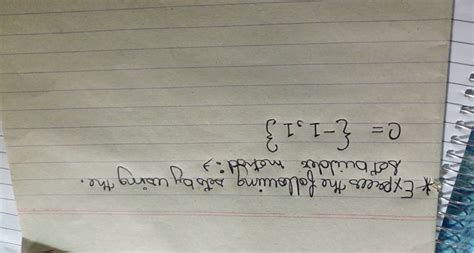 * Express the following sets by using the.
set builder method :>
C = {-1, 1}